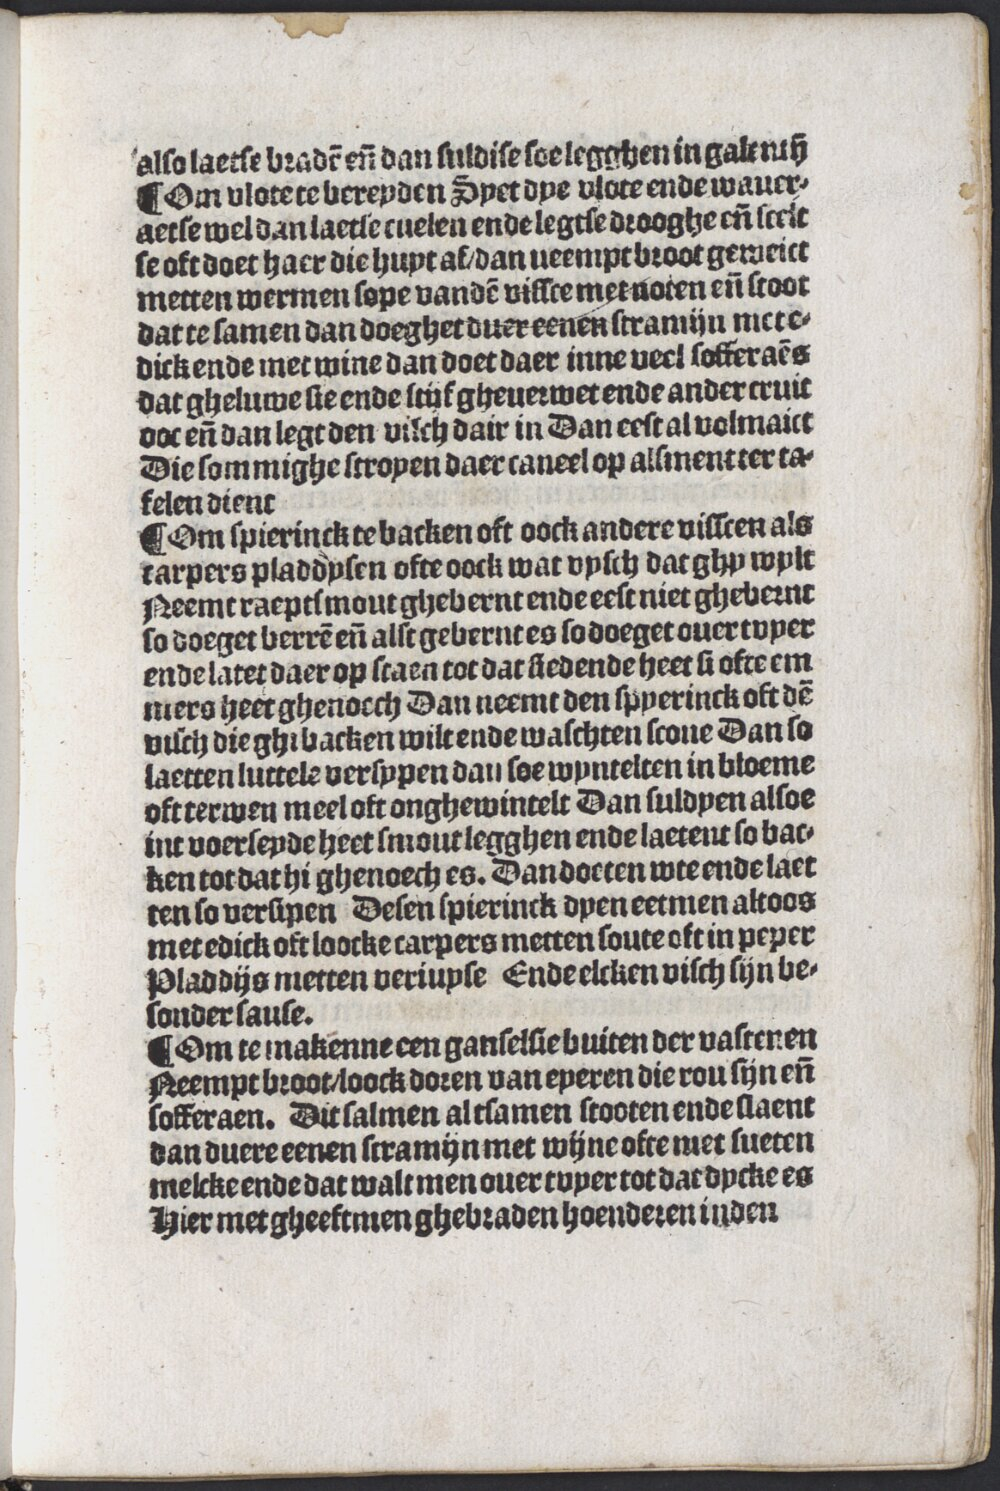 also laetse bradē en̄ dan suldise soe legghen in galentijn
¶Om vlote te bereyden Syet dye vlote ende wauer⸗
aetse wel dan laetse cuelen ende legtse drooghe en̄ scelt
se oft doet haer die huyt af/dan neempt broot geweict
metten wermen sope vandē vissce met noten en̄ stoot
dat te samen dan doeghet duer eenen stramijn met e⸗
dick ende met wine dan doet daer inne veel sofferaēs
dat gheluwe sie ende stijf gheuerwet ende ander cruit
ooc en̄ dan legt den visch dair in Dan eest al volmaict
Die sommighe stroyen daer caneel op alsment ter ta⸗
felen dient
¶Om spierinck te backen oft oock andere visscen als
carpers pladdysen ofte oock wat vysch dat ghy wylt
Neemt raeptsmout ghebernt ende eest niet ghebernt
so doeget berrē en̄ alst gebernt es so doeget ouer tvyer
ende latet daer op staen tot dat siedende heet si ofte em
mers heet ghenoech Dan neemt den spyerinck oft dē
visch die ghi backen wilt ende waschten scone Dan so
laetten luttele versypen dan soe wyntelten in bloeme
oft terwen meel oft onghewintelt Dan suldyen alsoe
int voerseyde heet smout legghen ende laetent so bac⸗
ken tot dat hi ghenoech es. Dan doetten wte ende laet
ten so versipen Desen spierinck dyen eetmen altoos
met edick oft loocke carpers metten soute oft in peper
Pladdijs metten veriuyse Ende elcken visch sijn be⸗
sonder sause.
¶Om te makenne een ganselsie buiten der vastenen
Neempt broot/loock doren van eyeren die rou sijn en̄
sofferaen. Dit salmen altsamen stooten ende slaent
dan duere eenen stramijn met wijne ofte met sueten
melcke ende dat walt men ouer tvyer tot dat dycke es
Hier met gheeftmen ghebraden hoenderen inden